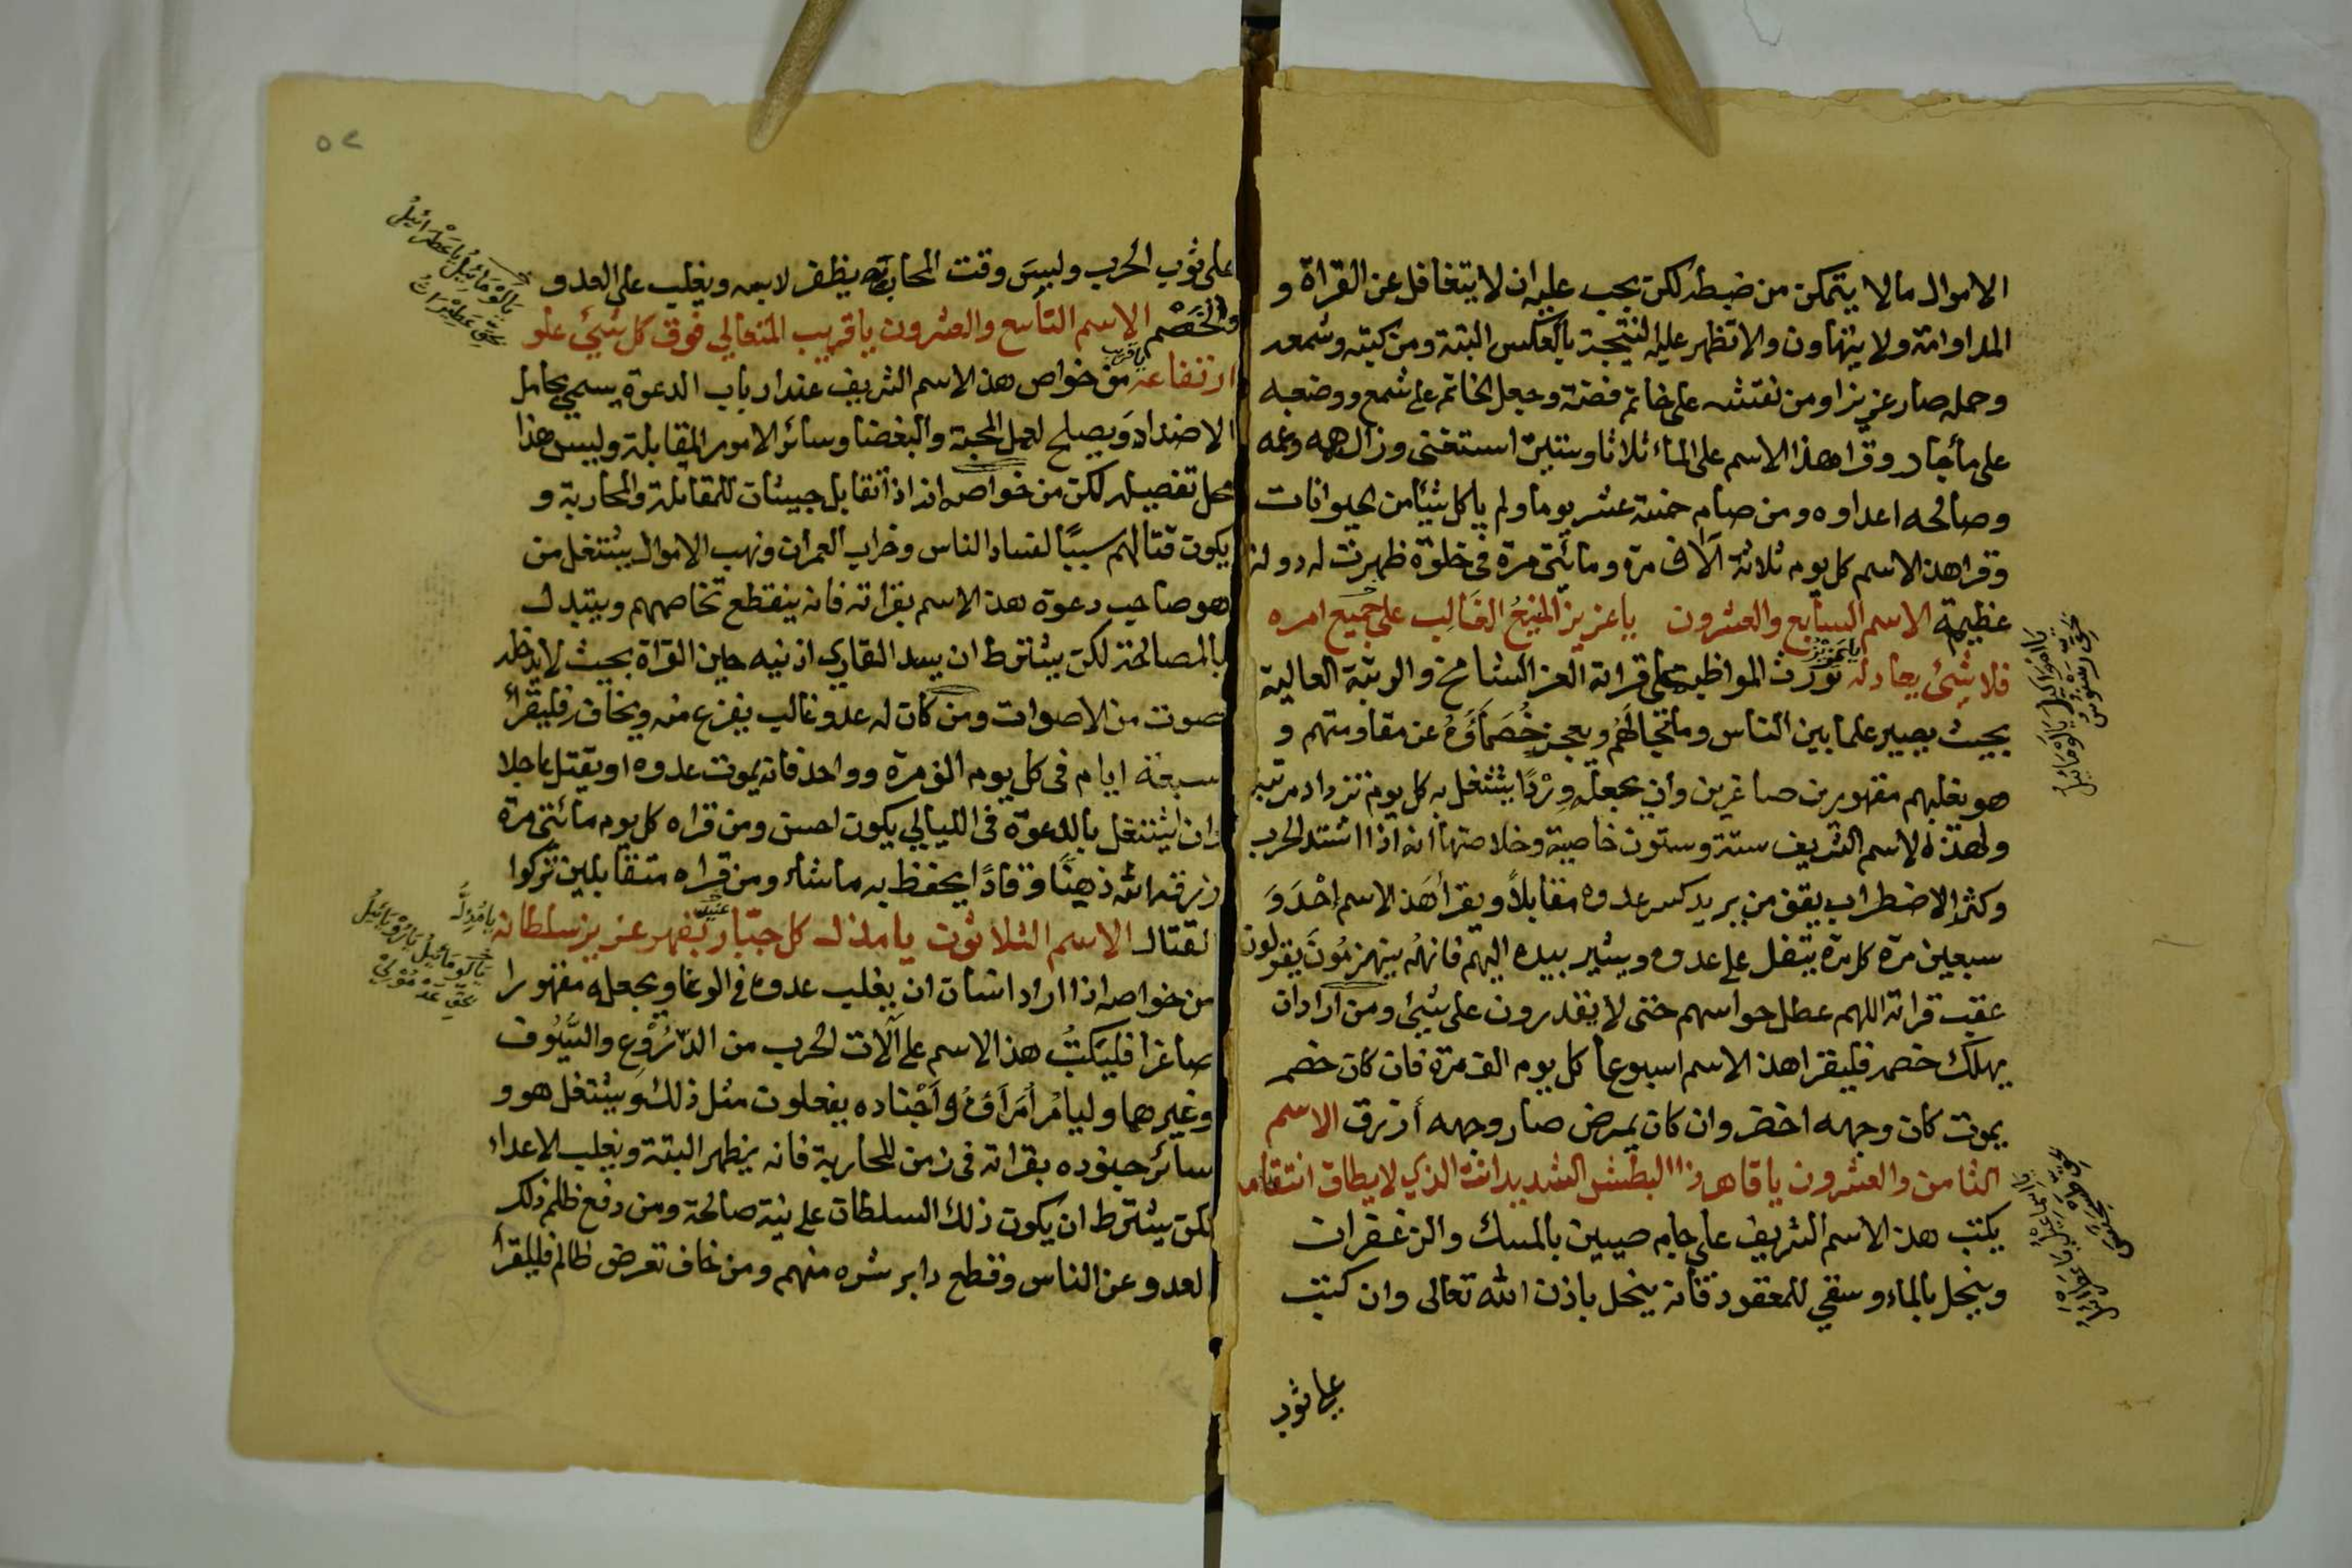 الاموال مالا يتمكن من ضبطه لكن يجب عليه ان لا يتغافل عن القراة و
المداومة ولا يتهاون والا تظهر عليه النتيجة بالعكس البتة ومن كتبه وشمعه
وحمله صار عزيزا ومن نقشه على خاتم فضة وجعل الخاتم على شمع ووضعه
على ماء جار وقرا هذا الاسم على الماء ثلاثا وستين استغنى وزال همه وغمه
وصالحه اعداوه ومن صام خمسة عشر يوما ولم ياكل شيئا من الحيوانات
وقرا هذ الاسم كل يوم ثلاثة آلاف مرة ومائتى مرة فى خلوة ظهرت له دولة
عظيمة الاسم السابع والعشرون يا عزيز المنيع الغالب على جميع امره
فلا شئ يعادله تورث المواظبة على قراته العز الشامخ والرتبة العالية
يا عزيز
بحيث يصير علما بين الناس وملتجا لهم ويعجز خصماؤه عن مقاومتهم و
هو يغلبهم مقهورين صاغرين وان يجعله وردا يشتغل به كل يوم تزداد مرتبته
ولهذه الاسم الشريف ستة وستون خاصية وخلاصتها انه اذا اشتد الحرب
وكثر الاضطراب يقف من يريد كسر عدوه مقابلا ويقرا هذ الاسم احد و
سبعين مرة كل مرة يتفل على عدوه ويشير بيده اليهم فانهم ينهزمون يقولون
عقب قراته اللهم عطل حواسهم حتى لا يقدرون على شئ ومن اراد ان
يهلك خصمه فليقرا هذ الاسم اسبوعا كل يوم الف مرة فان كان خصمه
يموت كان وجهه اخضر وان كان يمرض صار وجهه أزرق الاسم
الثامن والعشرون يا قاهر ذا البطش الشديد انت الذي لا يطاق انتقامه
يكتب هذ الاسم الشريف على جام صيين بالمسك والزعفران
وينحل بالماء وسقي للمعقود فانه ينحل باذن الله تعالى وان كتب
على ثوب
٥٢
على ثوب الحرب ولبس وقت المحاربة يظفر لابسه ويغلب على العدو
والخصم الاسم التاسع والعشرون يا قريب المتعالي فوق كل شئ علو
يا قريب
ارتفاعه من خواص هذ الاسم الشريف عند ارباب الدعوة يسمي بحامل
الاضداد ويصلح لعمل المحبة والبغضا وسائر الامور المقابلة وليس هذا
محل تفصيله لكن من خواصه انه اذا تقابل جيشان للمقاتلة والمحاربة و
يكون قتالهم سببًا لفساد الناس وخراب العمران ونهب الاموال يشتغل من
هو صاحب دعوة هذ الاسم بقراته فانه ينقطع تخاصمهم ويتبدل
بالمصالحة لكن يشترط ان يسد القاري اذنيه حين القراة بحيث لا يدخله
صوت من الاصوات ومن كان له عدو غالب يفزع منه ويخاف فليقرأ
سبعة ايام فى كل يوم الف مرة وواحد فانه يموت عدوه او يقتل عاجلا
وان اشتغل بالدعوة فى الليالي يكون احسن ومن قراه كل يوم مائتى مرة
رزقه الله ذهنًا وقادًا يحفظ به ماشاء ومن قراه متقابلين تركوا
القتال الاسم الثلاثون يا مذل كل جبّار عنيد بقهر عزيز سلطانه
من خواصه اذا اراد انسان ان يغلب عدوه فى الوغا ويجعله مقهورا
صاغرا فليكتب هذ الاسم على آلات الحرب من الدروع والسيوف
وغيرهما وليامر أمراؤه وأجناده يفعلون مثل ذلك ويشتغل هو و
سائر جنوده بقراته فى زمن المحاربة فانه يظهر البتة ويغلب الاعداء
لكن يشترط ان يكون ذلك السلطان على نية صالحة ومن دفع ظلم ذلك
العدو عن الناس وقطع دابر شره منهم ومن خاف تعرض ظالم فليقرأ